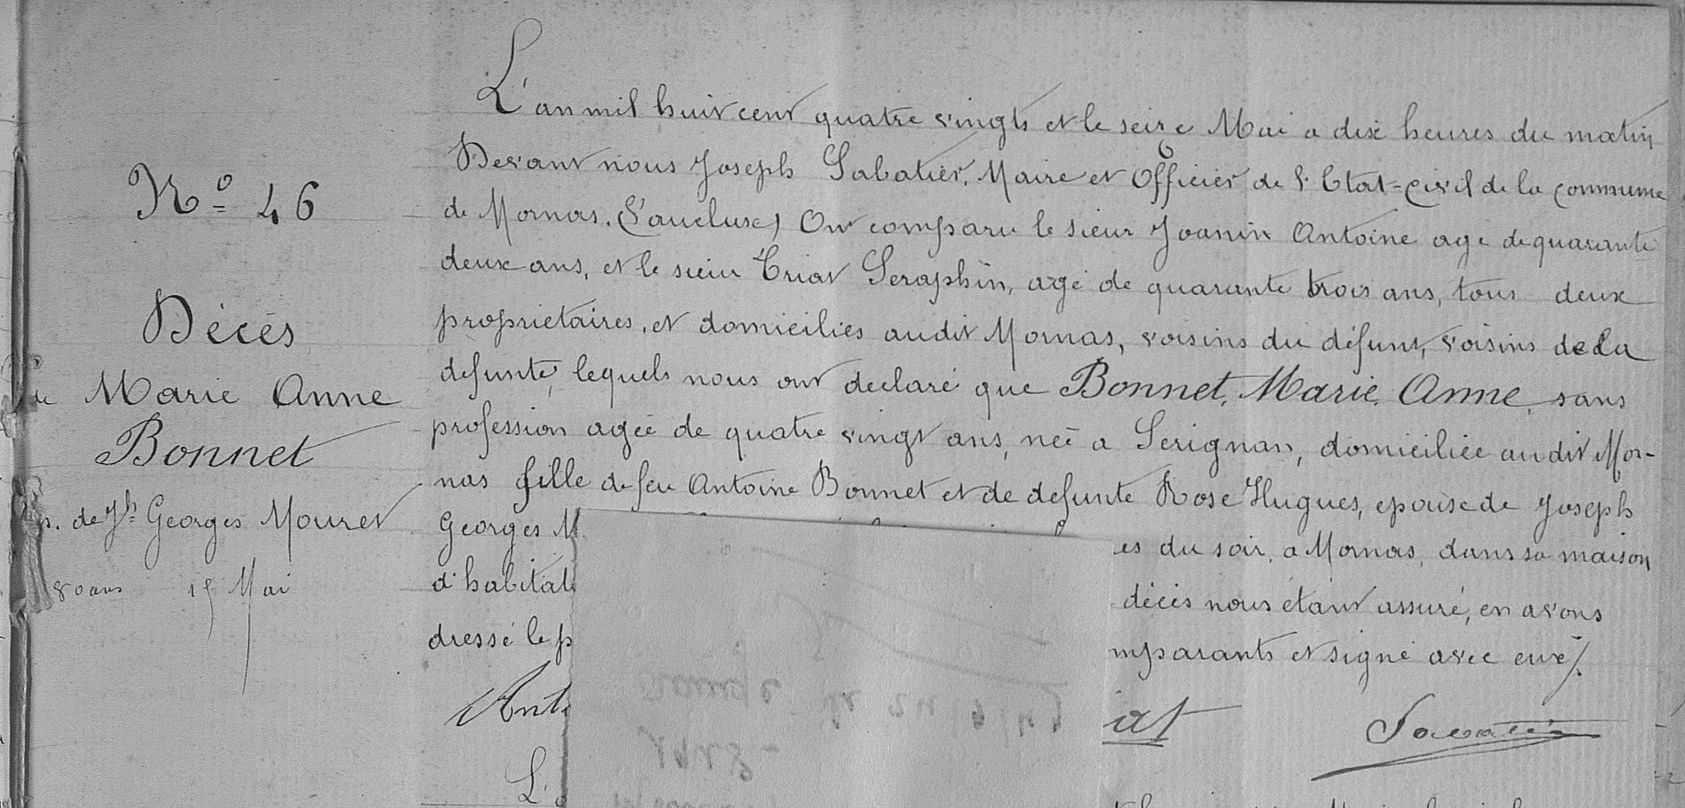 N° 46
Décès
de Marie Anne
Bonnet
ép. de Jh Georges Mouret
80 ans 15 Mai
L'an mil huit cent quatre vingts et le seize Mai a dix heures du matin
Devant nous Joseph Sabatier, Maire et Officier de l'Etat-civil de la commune
de Mornas. (Vaucluse) Ont comparu le sieur Joanin Antoine agé de quarante
deux ans, et le sieur Criat Seraphin, agé de quarante trois ans, tous deux
proprietaires, et domiciliés audit Mornas, voisins du défunt, voisins de la
defunte, lequels nous ont declaré que Bonnet, Marie, Anne, sans
profession agée de quatre vingt ans, neé a Serignan, domiciliée audit Mor-
nas fille de feu Antoine Bonnet et de defunte Rose Hugues, epouse de Joseph
Georges M
es du soir, a Mornas, dans sa maison
d'habitat
décès nous étant assuré, en avons
dressé le p
mparants et signé avec eux/.
Ant
iat
Sabatier
L'